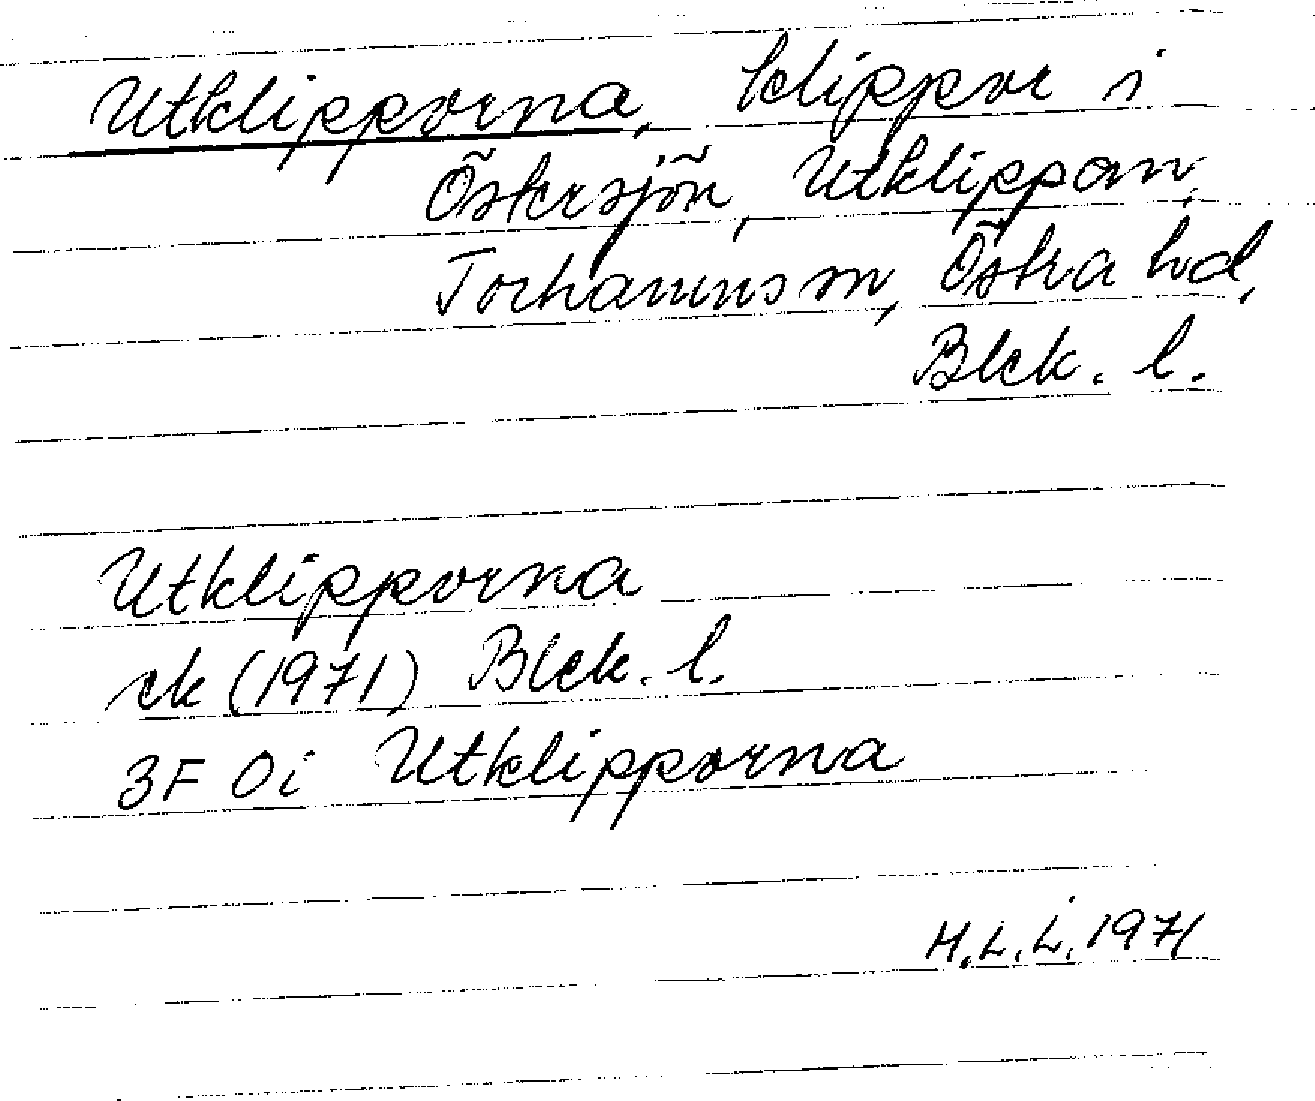 Utklipporna, klippor i
Östersjön, Utklippan,
Torhamns sn, Östra hd,
Blek. l.
Utklipporna
ek (1971) Blek. l.
3F 0i Utklipporna
H.L.L. 1971